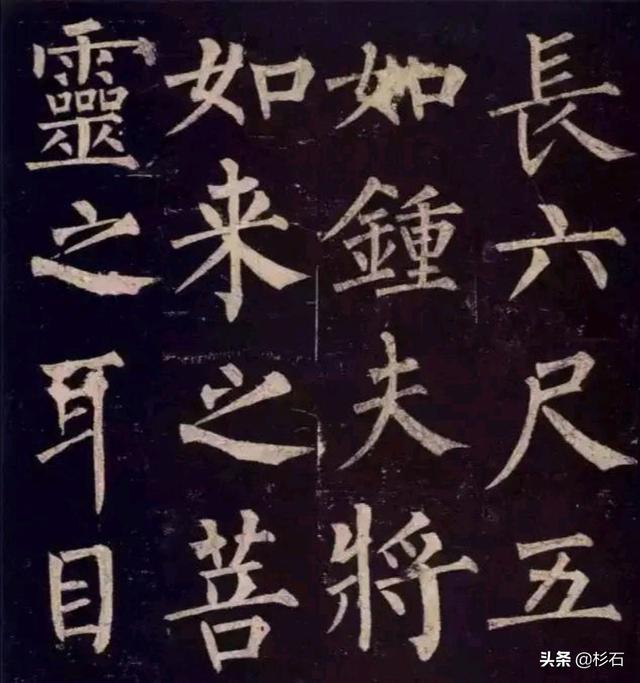 長六尺五
如鍾夫將
如来之菩
靈之耳目
头条 @杉石